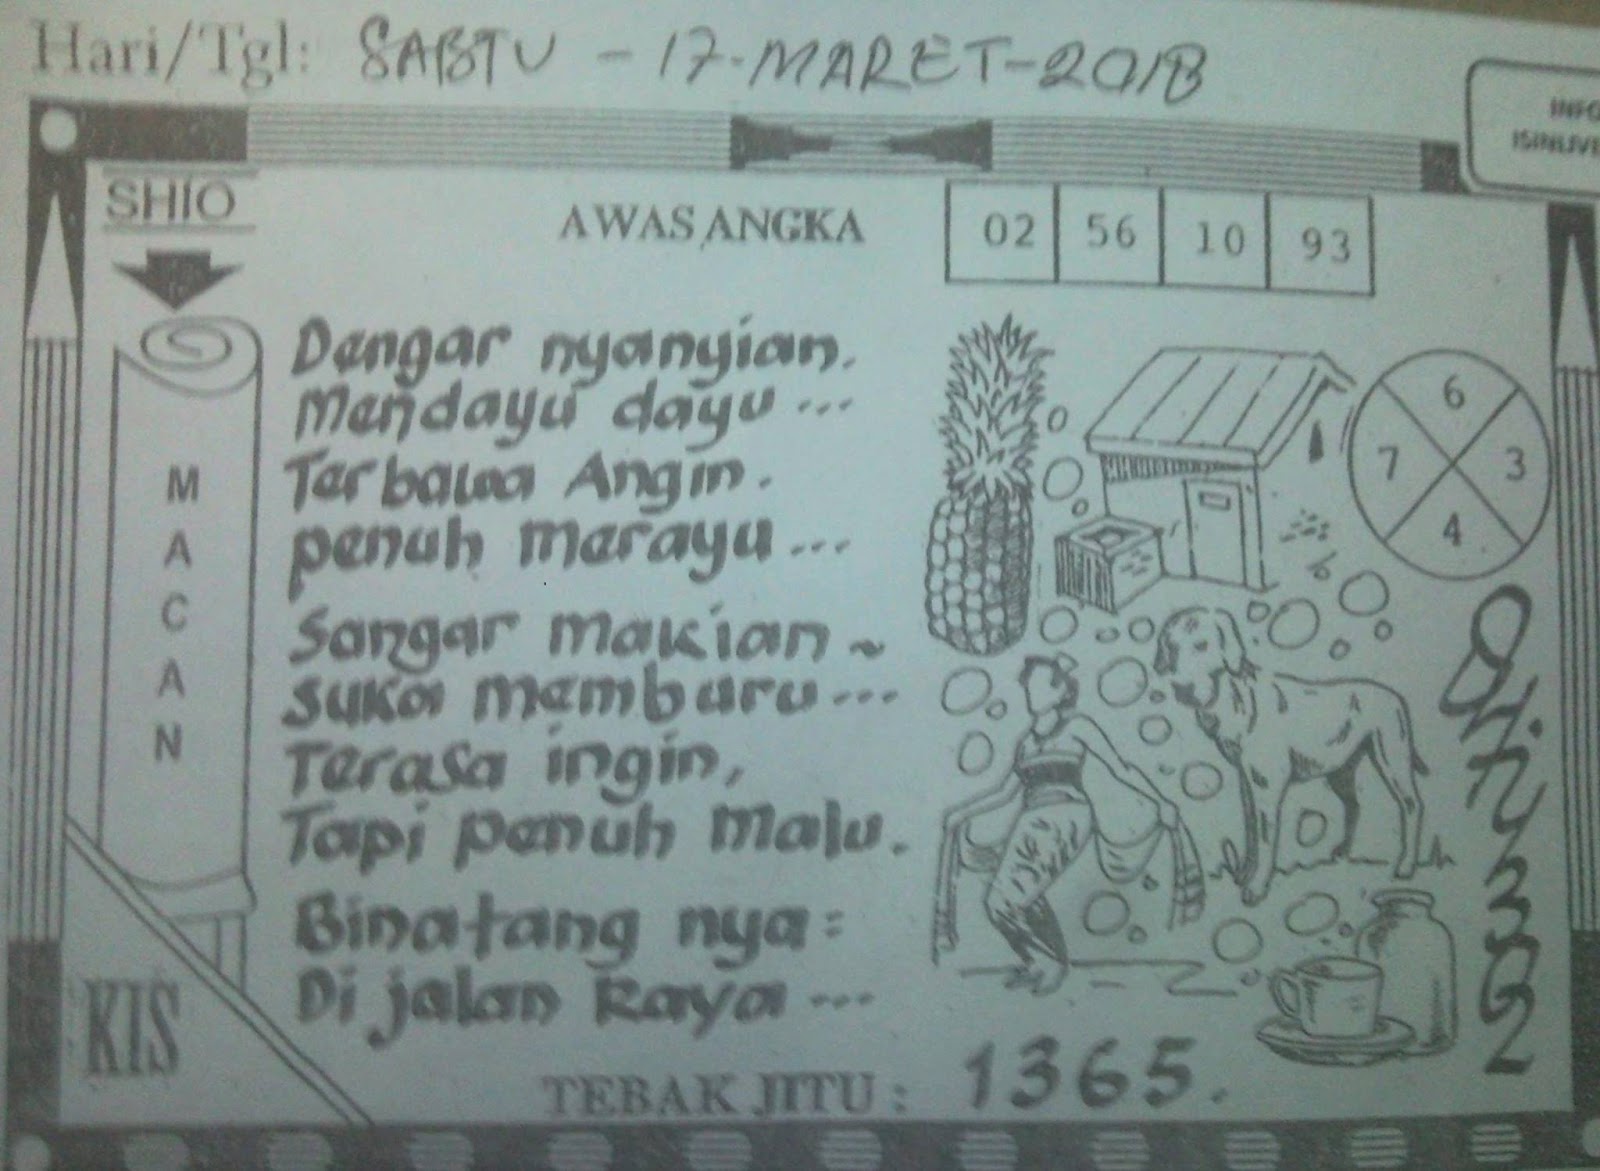 Hari/Tgl: SABTU - 17-MARET-2018
INFO
SHIO
AWAS ANGKA 02 56 10 93
MACAN
Dengar nyanyian.
Mendayu dayu ...
Terbawa Angin.
penuh merayu ...
Sangar makian ~
suka memburu ...
Terasa ingin,
Tapi penuh malu.
Binatang nya:
Di jalan Raya ...
6
7 3
4
KIS
TEBAK JITU: 1365.